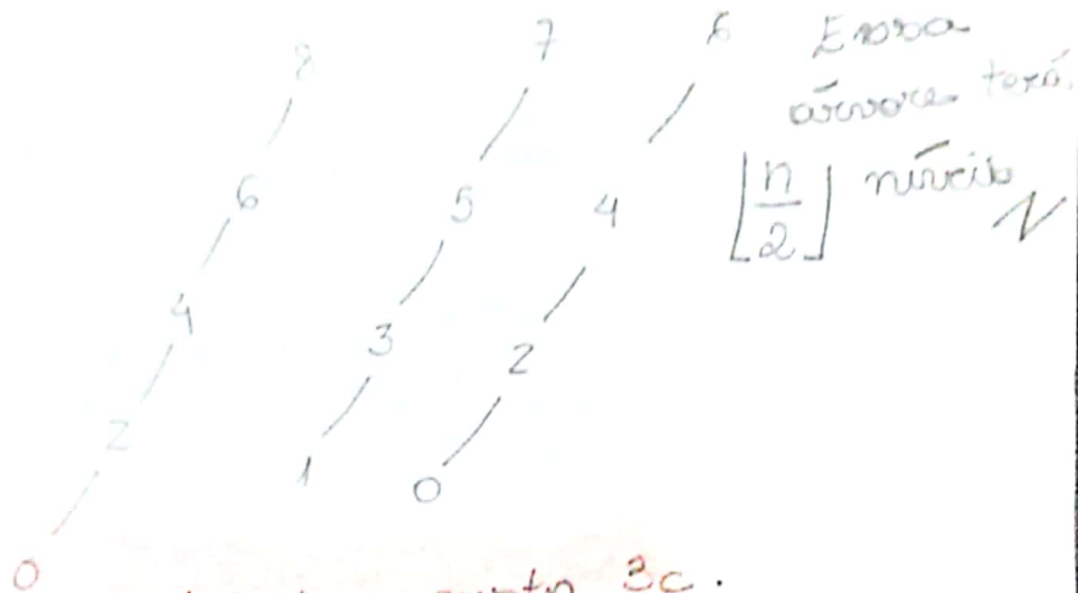 8 7 6 Essa
árvore terá
6 5 4 ⌊n/2⌋ níveis
4 3 2
2 1 0
0
3c.